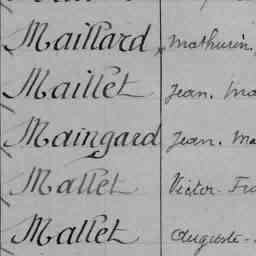 Maillard, Mathurin,
Maillet Jean. Ma
Maingard Jean. Ma
Mallet Victor. Fra
Mallet Auguste.